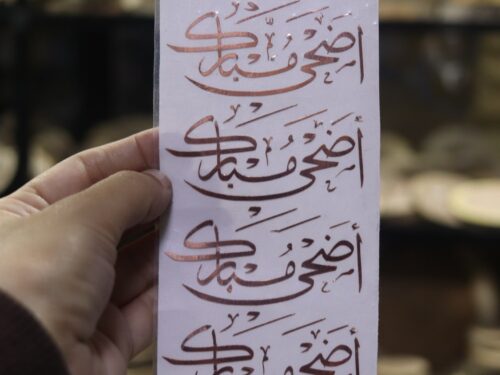 أضحى مبارك
أضحى مبارك
أضحى مبارك
أضحى مبارك